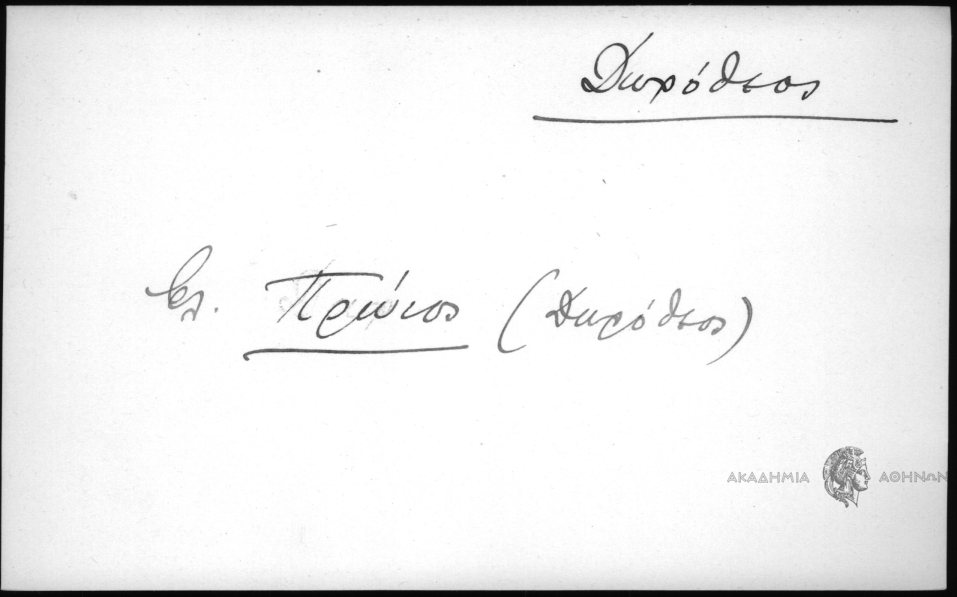 Δωρόθεος
βλ. Πρώιος (Δωρόθεος)
ΑΚΑΔΗΜΙΑ ΑΘΗΝΩΝ